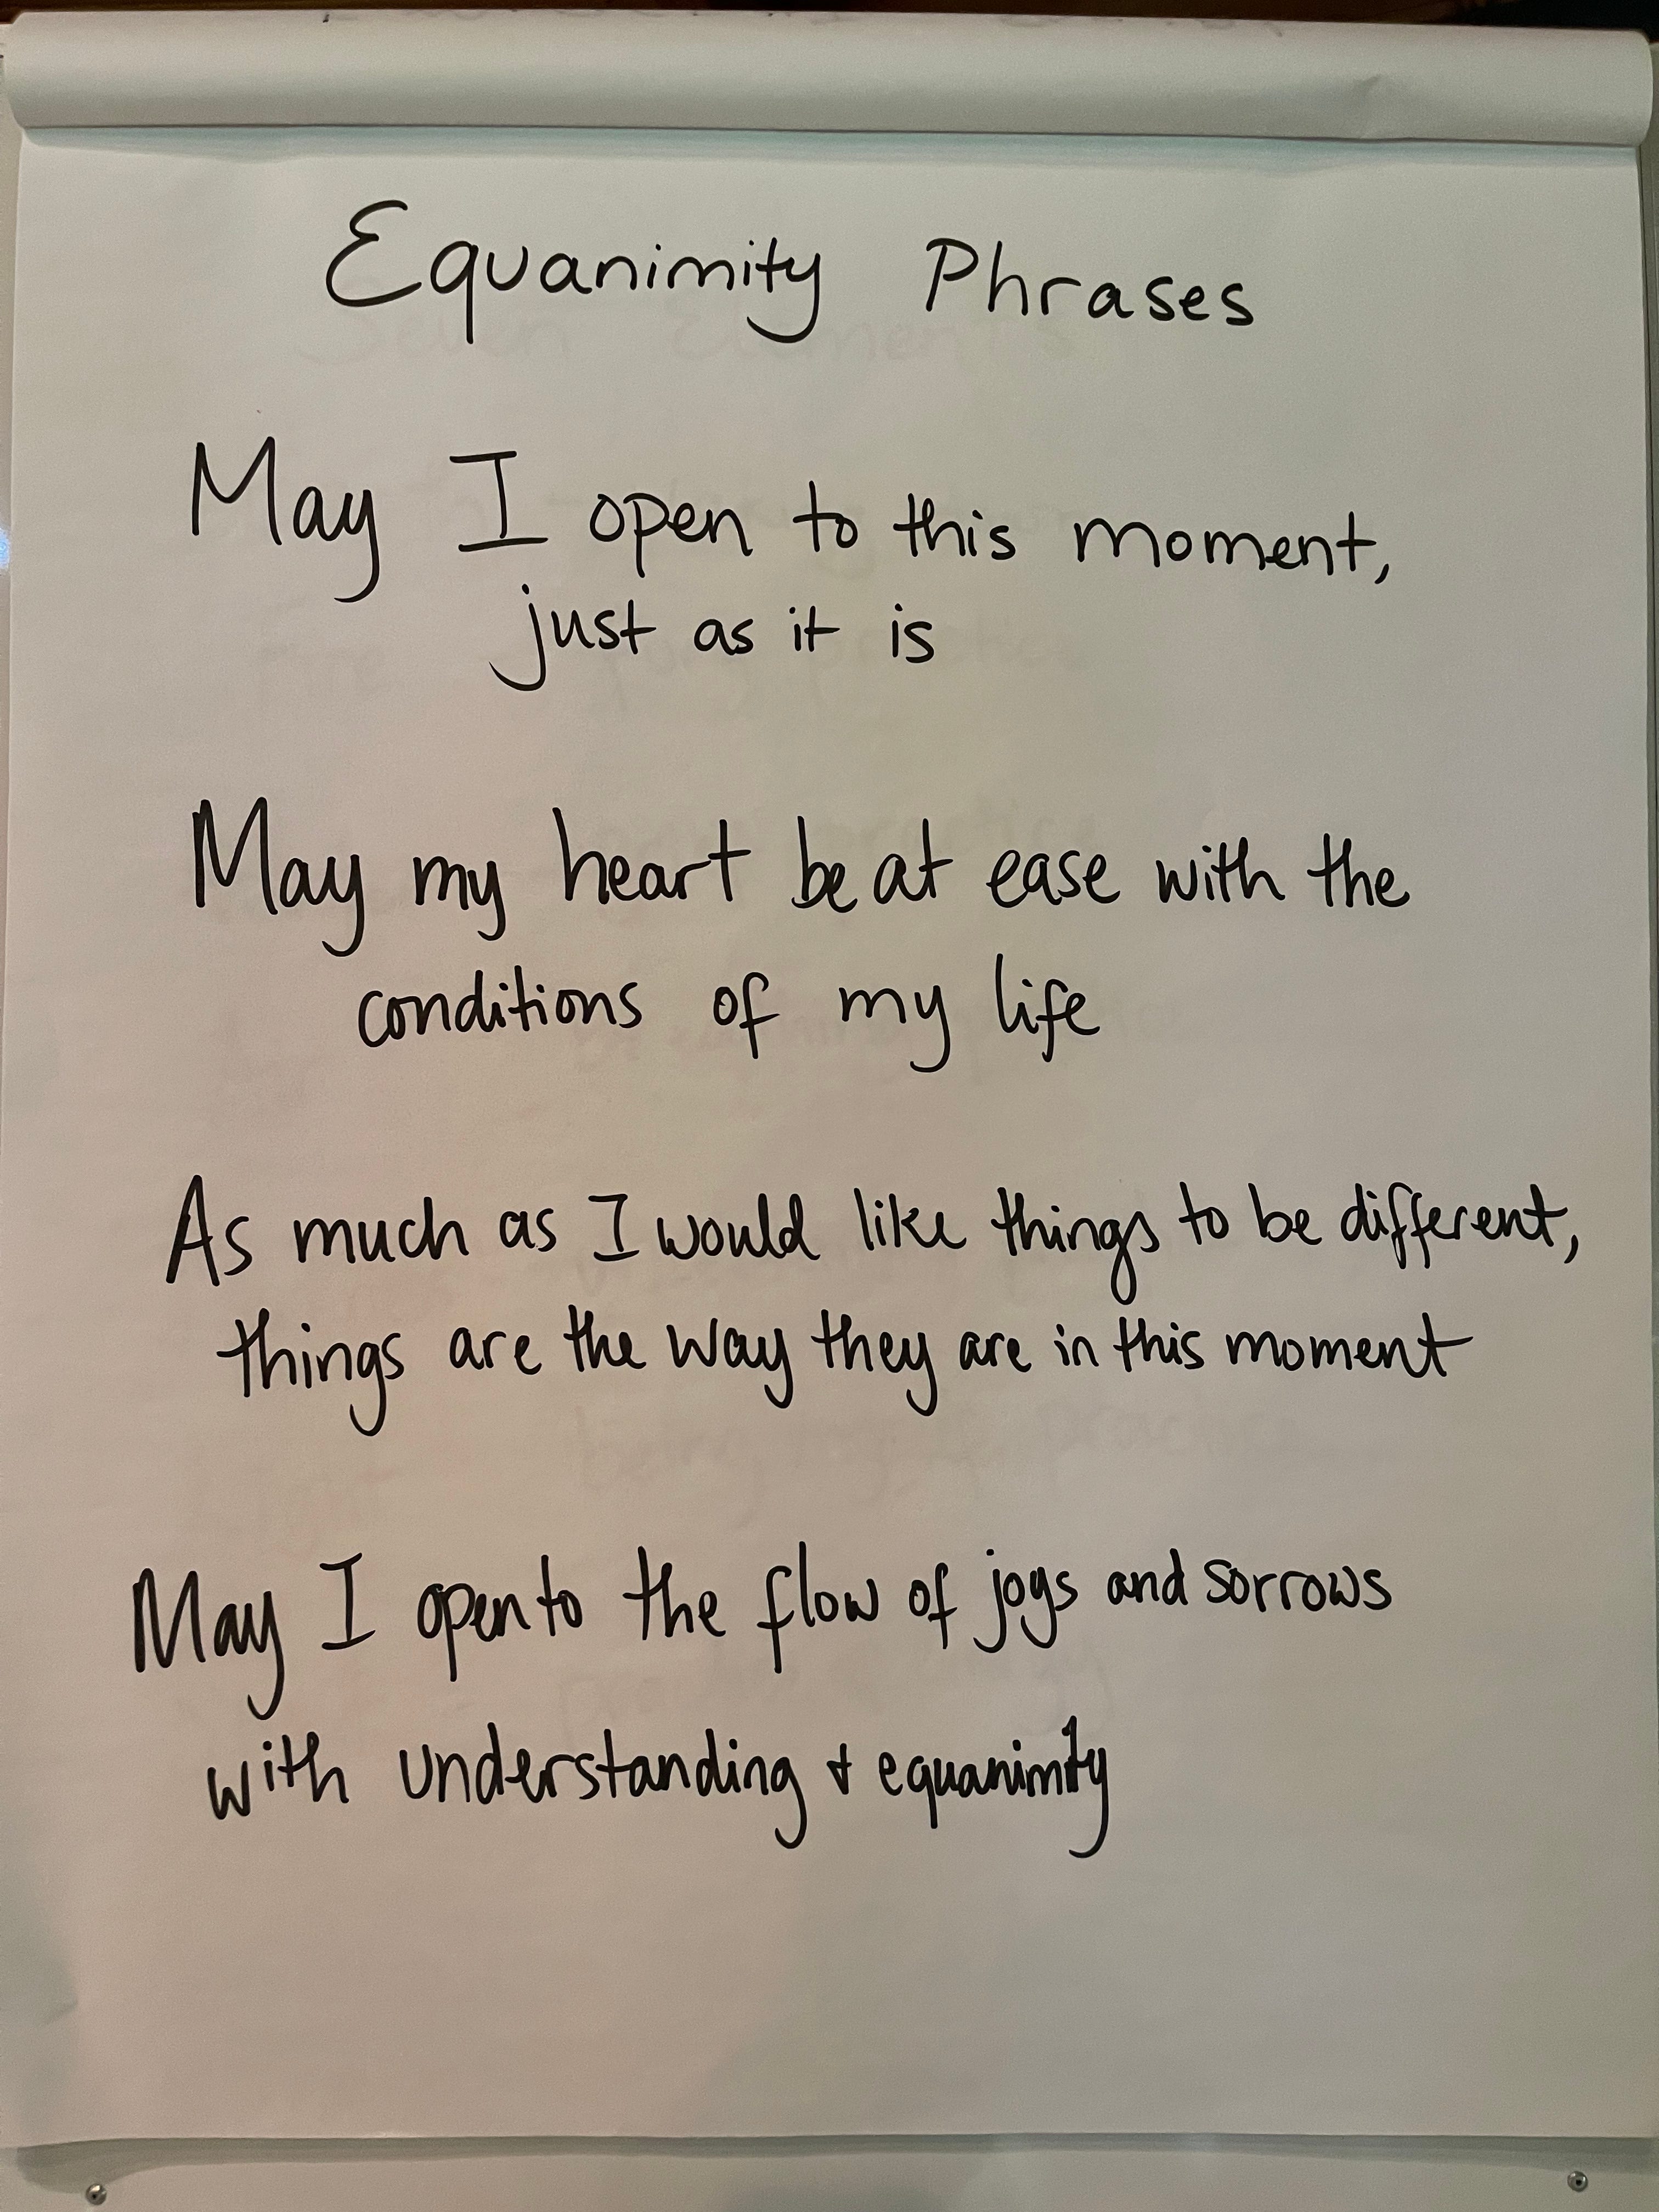 Equanimity Phrases
May I open to this moment,
just as it is
May my heart be at ease with the
conditions of my life
As much as I would like things to be different,
things are the way they are in this moment
May I open to the flow of joys and sorrows
with understanding + equanimity